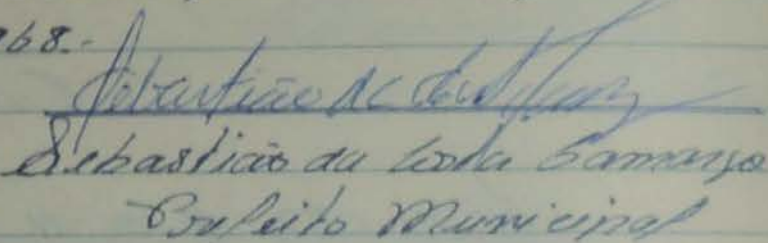 968.-
Sebastião da Costa
Sebastião da Costa Camargo
Prefeito Municipal